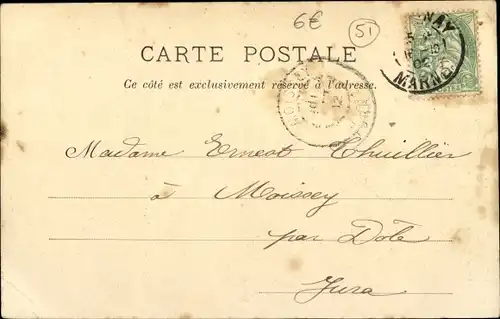 6€
51
CARTE POSTALE
Ce côté est exclusivement réservé à l'adresse.
MARNE
Madame Ernest Thuillier
à Moissey
par Dôle
Jura